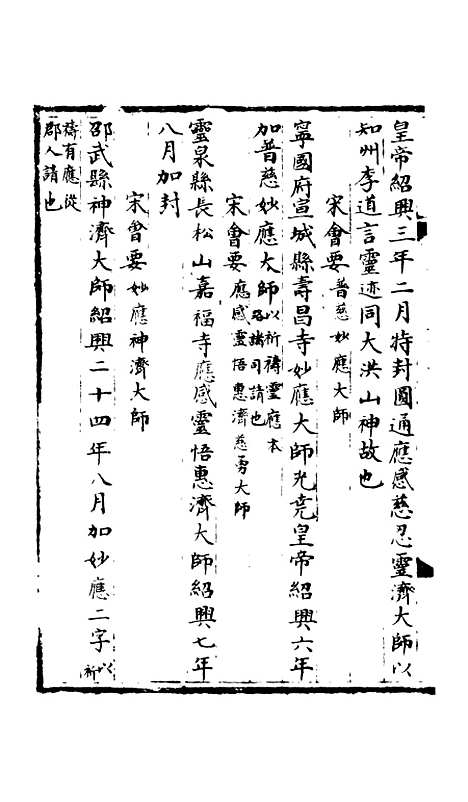 皇帝紹興三年二月特封圓通應感慈忍靈濟大師以
知州李道言靈迹同大洪山神故也
宋會要普慈妙應大師
寧國府宣城縣壽昌寺妙應大師光堯皇帝紹興六年
加普慈妙應大師以祈禱靈應本
路諸司請也
宋會要應感靈悟惠濟慈勇大師
靈泉縣長松山嘉福寺應感靈悟惠濟大師紹興七年
八月加封
宋會要妙應神濟大師
邵武縣神濟大師紹興二十四年八月加妙應二字以
祈
禱有應從
郡人請也